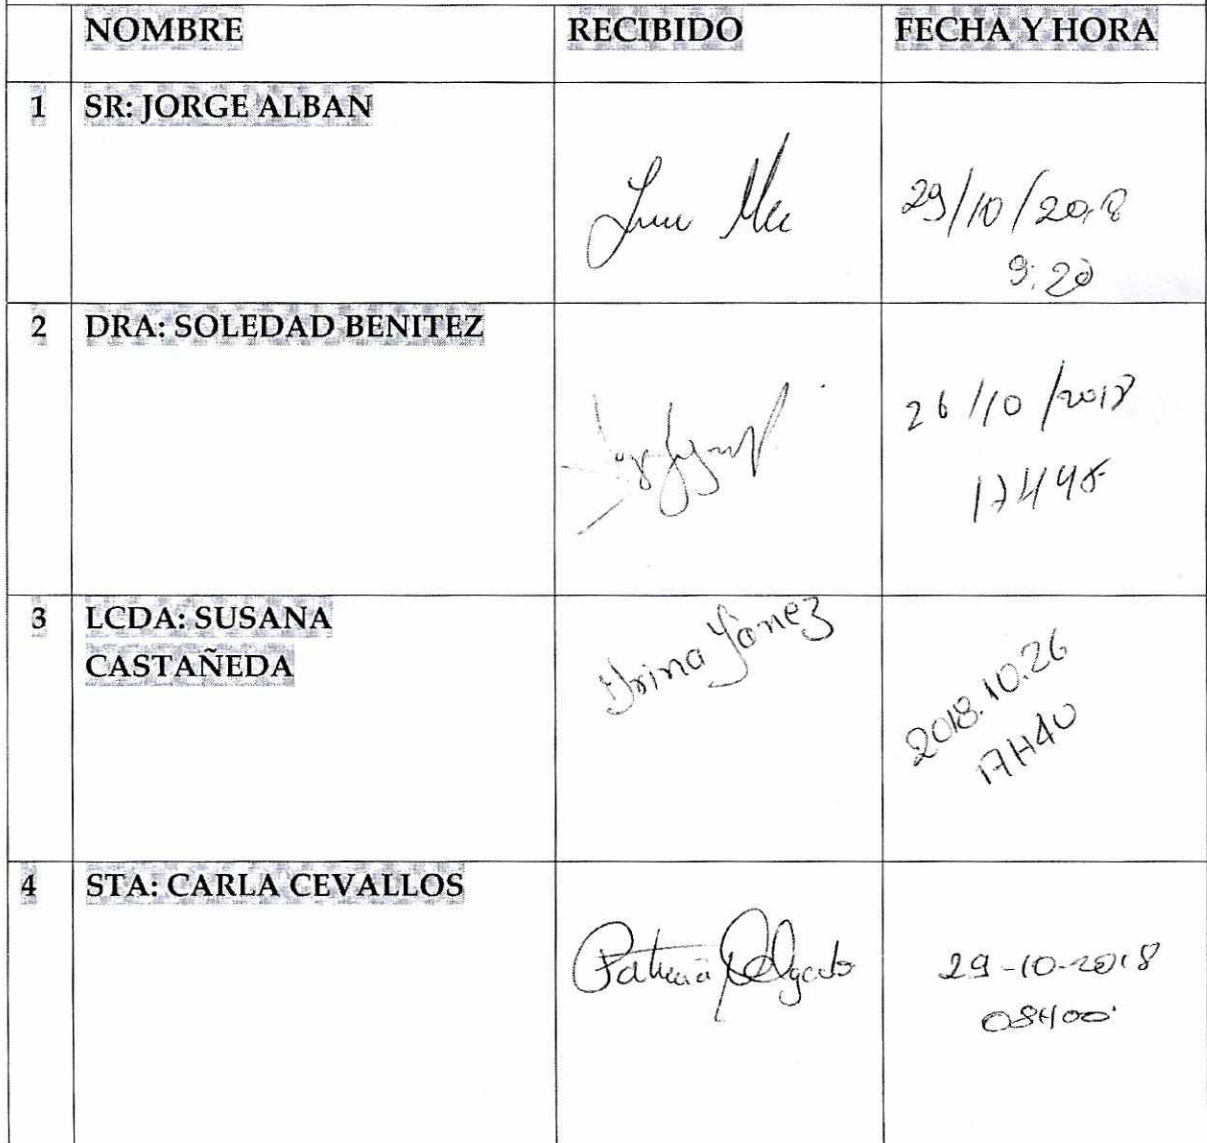 NOMBRE RECIBIDO FECHA Y HORA
1 SR: JORGE ALBAN
29/10/2018
9:20
2 DRA: SOLEDAD BENITEZ
26/10/2018
17H45
3 LCDA: SUSANA
CASTAÑEDA
Irina Yánez
2018.10.26
17H40
4 STA: CARLA CEVALLOS
Patricia Delgado
29-10-2018
08H00